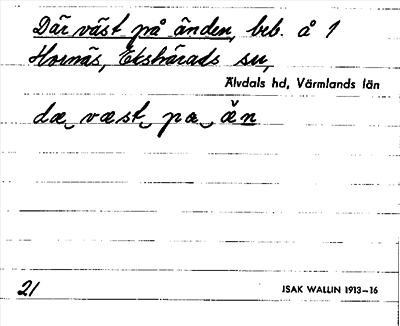 Där väst på änden, beb. å 1
Hornäs, Ekshärads sn,
Älvdals hd, Värmlands län
dæ væst pa æ̆n
21
ISAK WALLIN 1913–16